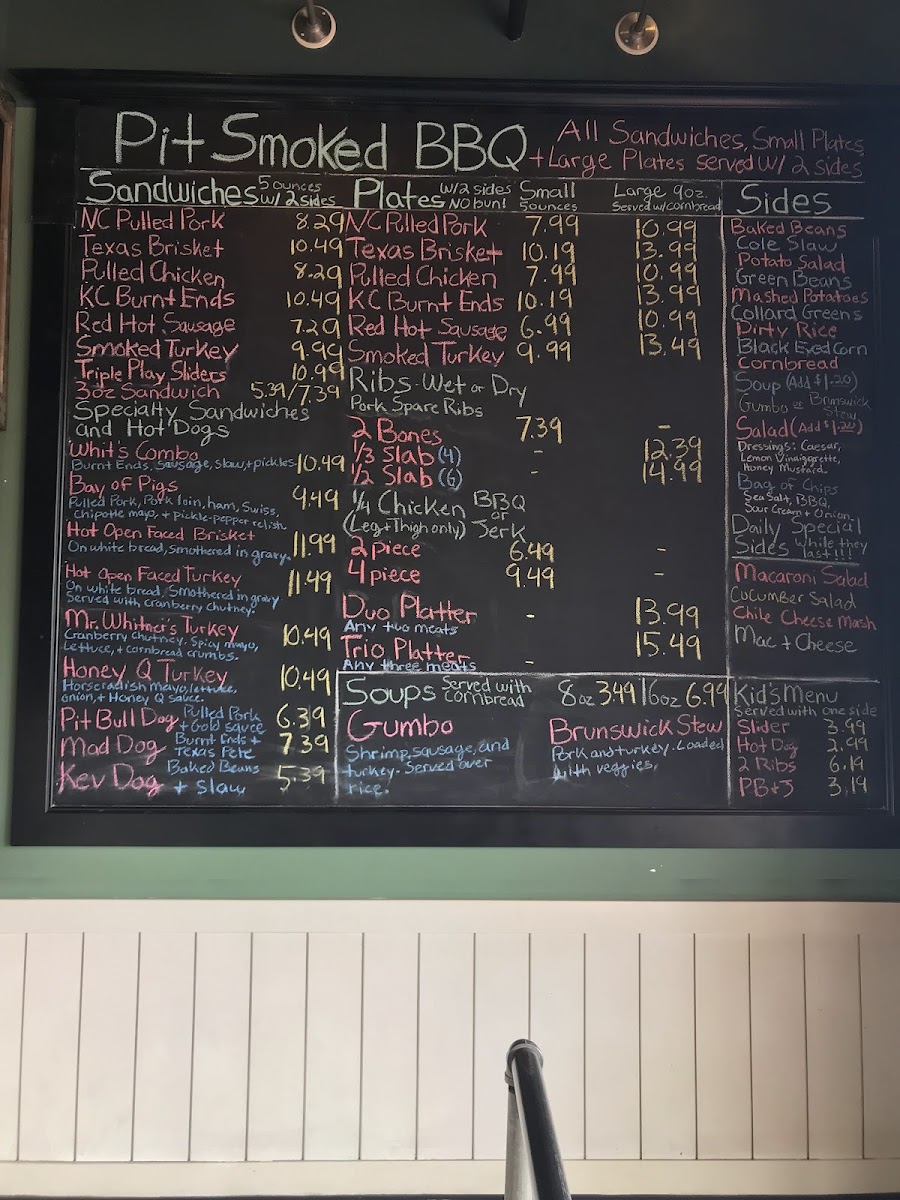 Pit Smoked BBQ
All Sandwiches, Small Plates
+ Large Plates served w/ 2 sides
Sandwiches 5 ounces w/ 2 sides
NC Pulled Pork 8.29
Texas Brisket 10.49
Pulled Chicken 8.29
KC Burnt Ends 10.49
Red Hot Sausage 7.29
Smoked Turkey 9.99
Triple Play Sliders 10.99
3oz Sandwich 5.39/7.39
Specialty Sandwiches
and Hot Dogs
Whit's Combo
Burnt Ends, Sausage, slaw, + pickles 10.49
Bay of Pigs 9.49
Pulled Pork, Pork loin, ham, Swiss,
Chipotle mayo, + pickle-pepper relish.
Hot Open Faced Brisket 11.99
On white bread, smothered in gravy.
Hot Open Faced Turkey 11.49
On white bread, Smothered in gravy
Served with cranberry chutney.
Mr. Whitner's Turkey 10.49
Cranberry Chutney, Spicy mayo,
Lettuce, + cornbread crumbs.
Honey Q Turkey 10.49
Horseradish mayo, lettuce,
onion, + Honey Q sauce.
Pit Bull Dog Pulled Pork + Gold sauce 6.39
Mad Dog Burnt Ends + Texas Pete 7.39
Kev Dog Baked Beans + slaw 5.39
Plates w/ 2 sides NO bun! Small 5 ounces Large 9oz. Served w/cornbread
NC Pulled Pork 7.99 10.99
Texas Brisket 10.19 13.99
Pulled Chicken 7.99 10.99
KC Burnt Ends 10.19 13.99
Red Hot Sausage 6.99 10.99
Smoked Turkey 9.99 13.49
Ribs - Wet or Dry
Pork Spare Ribs
2 Bones 7.39 -
1/3 Slab (4) - 12.39
1/2 Slab (6) - 14.99
1/4 Chicken BBQ or Jerk
(Leg + Thigh only)
2 piece 6.49 -
4 piece 9.49 -
Duo Platter - 13.99
Any two meats
Trio Platter - 15.49
Any three meats
Soups Served with cornbread 8oz 3.49 | 16oz 6.99
Gumbo
Shrimp, sausage, and
turkey. Served over
rice.
Brunswick Stew
Pork and turkey. Loaded
with veggies.
Sides
Baked Beans
Cole Slaw
Potato Salad
Green Beans
Mashed Potatoes
Collard Greens
Dirty Rice
Black Eyed Corn
Cornbread
Soup (Add $1.20)
Gumbo or Brunswick Stew
Salad (Add $1.20)
Dressings: Caesar,
Lemon Vinaigrette,
Honey Mustard.
Bag of Chips
Sea Salt, BBQ,
Sour Cream + Onion
Daily Special
Sides while they last!!!
Macaroni Salad
Cucumber Salad
Chile Cheese Mash
Mac + Cheese
Kid's Menu
Served with one side
Slider 3.99
Hot Dog 2.99
2 Ribs 6.19
PB+J 3.19